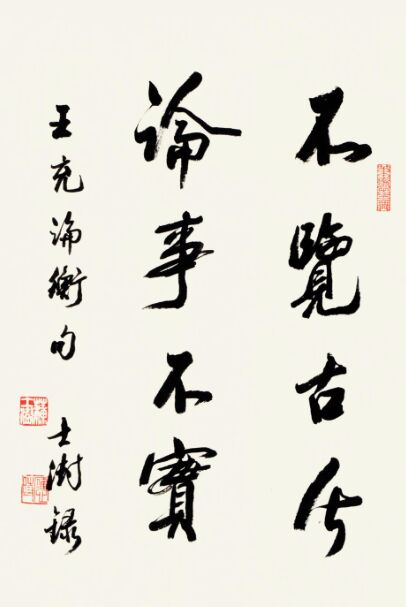 不覽古今
論事不實
王充論衡句 士澍錄